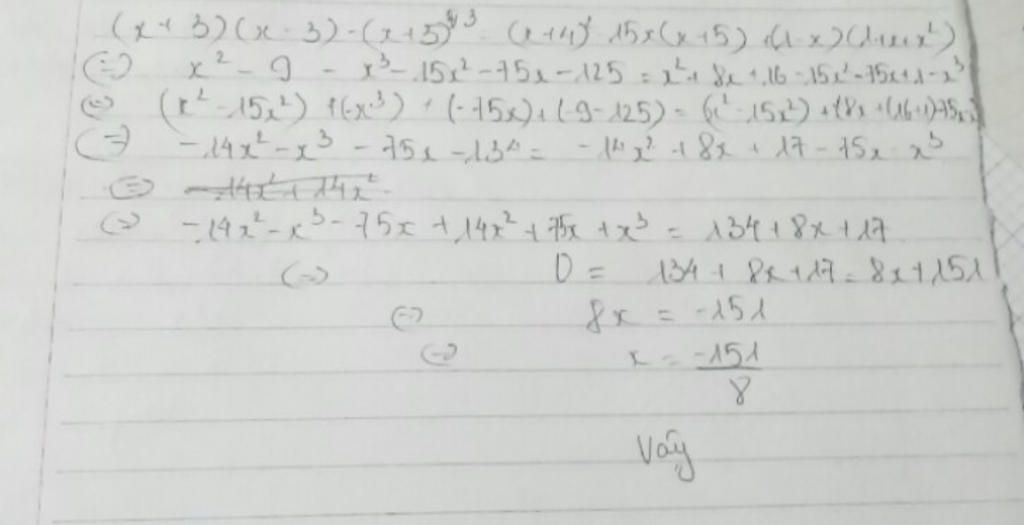 (x+3)(x-3)-(x+5)³ = (x+4)² - 15x(x+5) + (1-x)(1+x+x²)
(=) x² - 9 - x³ - 15x² - 75x - 125 = x² + 8x + 16 - 15x² - 75x + 1 - x³
(=) (x² - 15x²) + (-x³) + (-75x) + (-9-125) = (x² - 15x²) + (8x + (16+1) - 75x
(=) -14x² - x³ - 75x - 134 = -14x² + 8x + 17 - 75x - x³
(=) -14x² + 14x²
(=) -14x² - x³ - 75x + 14x² + 75x + x³ = 134 + 8x + 17
(=) 0 = 134 + 8x + 17 = 8x + 151
(=) 8x = -151
(=) x = -151/8
Vậy